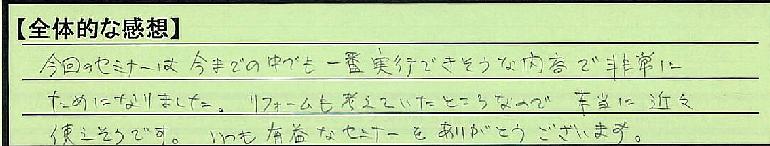 【全体的な感想】
今回のセミナーは今までの中でも一番実行できそうな内容で非常に
ためになりました。リフォームも考えていたところなので本当に近々
使えそうです。いつも有益なセミナーをありがとうございます。